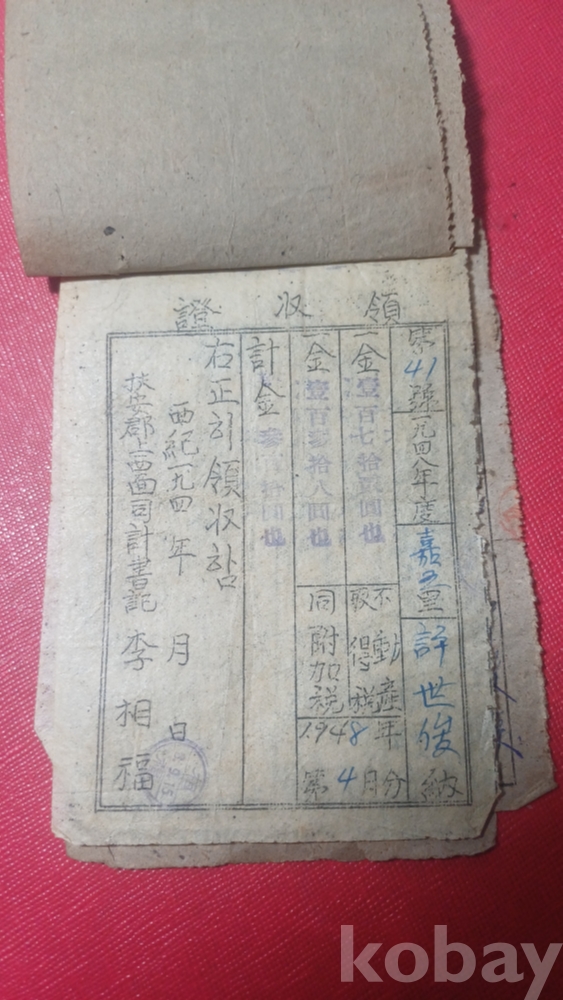 領収證
第41號 一九四八年度 嘉五里 許世俊 納
一金 壹百七拾貳圓也 不動産取得稅
一金 壹百參拾八圓也 同附加稅
1948年 第4月分
計金 參 拾圓也
右正히領収함
西紀一九四 年 月 日
扶安郡上西面司計書記 李相福
kobay